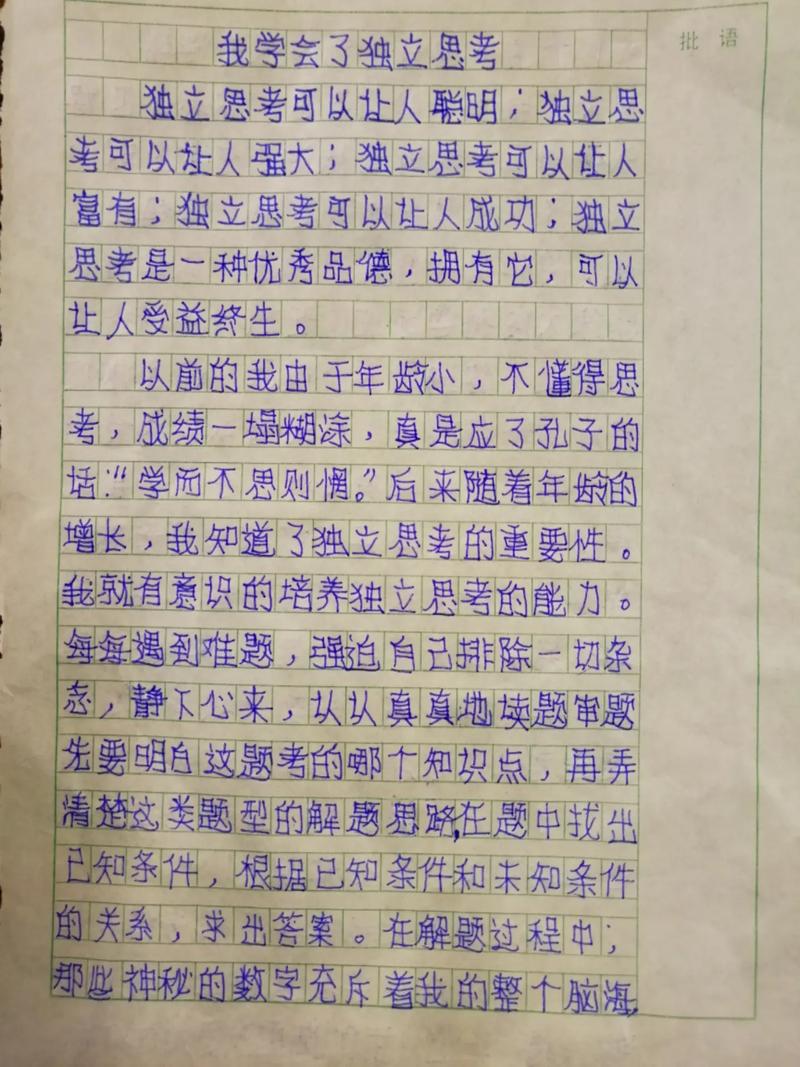 批语
我学会了独立思考
独立思考可以让人聪明；独立思
考可以让人强大；独立思考可以让人
富有；独立思考可以让人成功；独立
思考是一种优秀品德，拥有它，可以
让人受益终生。
以前的我由于年龄小，不懂得思
考，成绩一塌糊涂，真是应了孔子的
话：“学而不思则惘。”后来随着年龄的
增长，我知道了独立思考的重要性。
我就有意识的培养独立思考的能力。
每每遇到难题，强迫自己排除一切杂
念，静下心来，认认真真地读题审题
先要明白这题考的哪个知识点，再弄
清楚这类题型的解题思路，在题中找出
已知条件，根据已知条件和未知条件
的关系，求出答案。在解题过程中；
那些神秘的数字充斥着我的整个脑海，